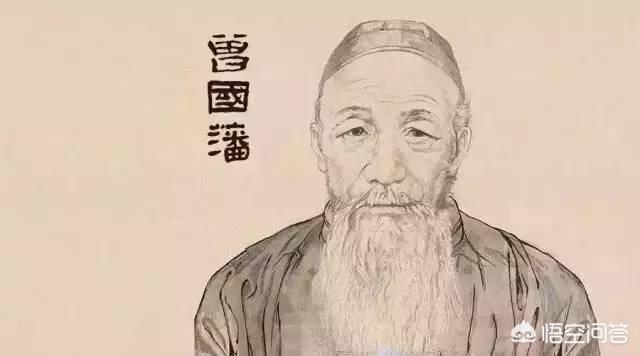 曾國藩
悟空问答